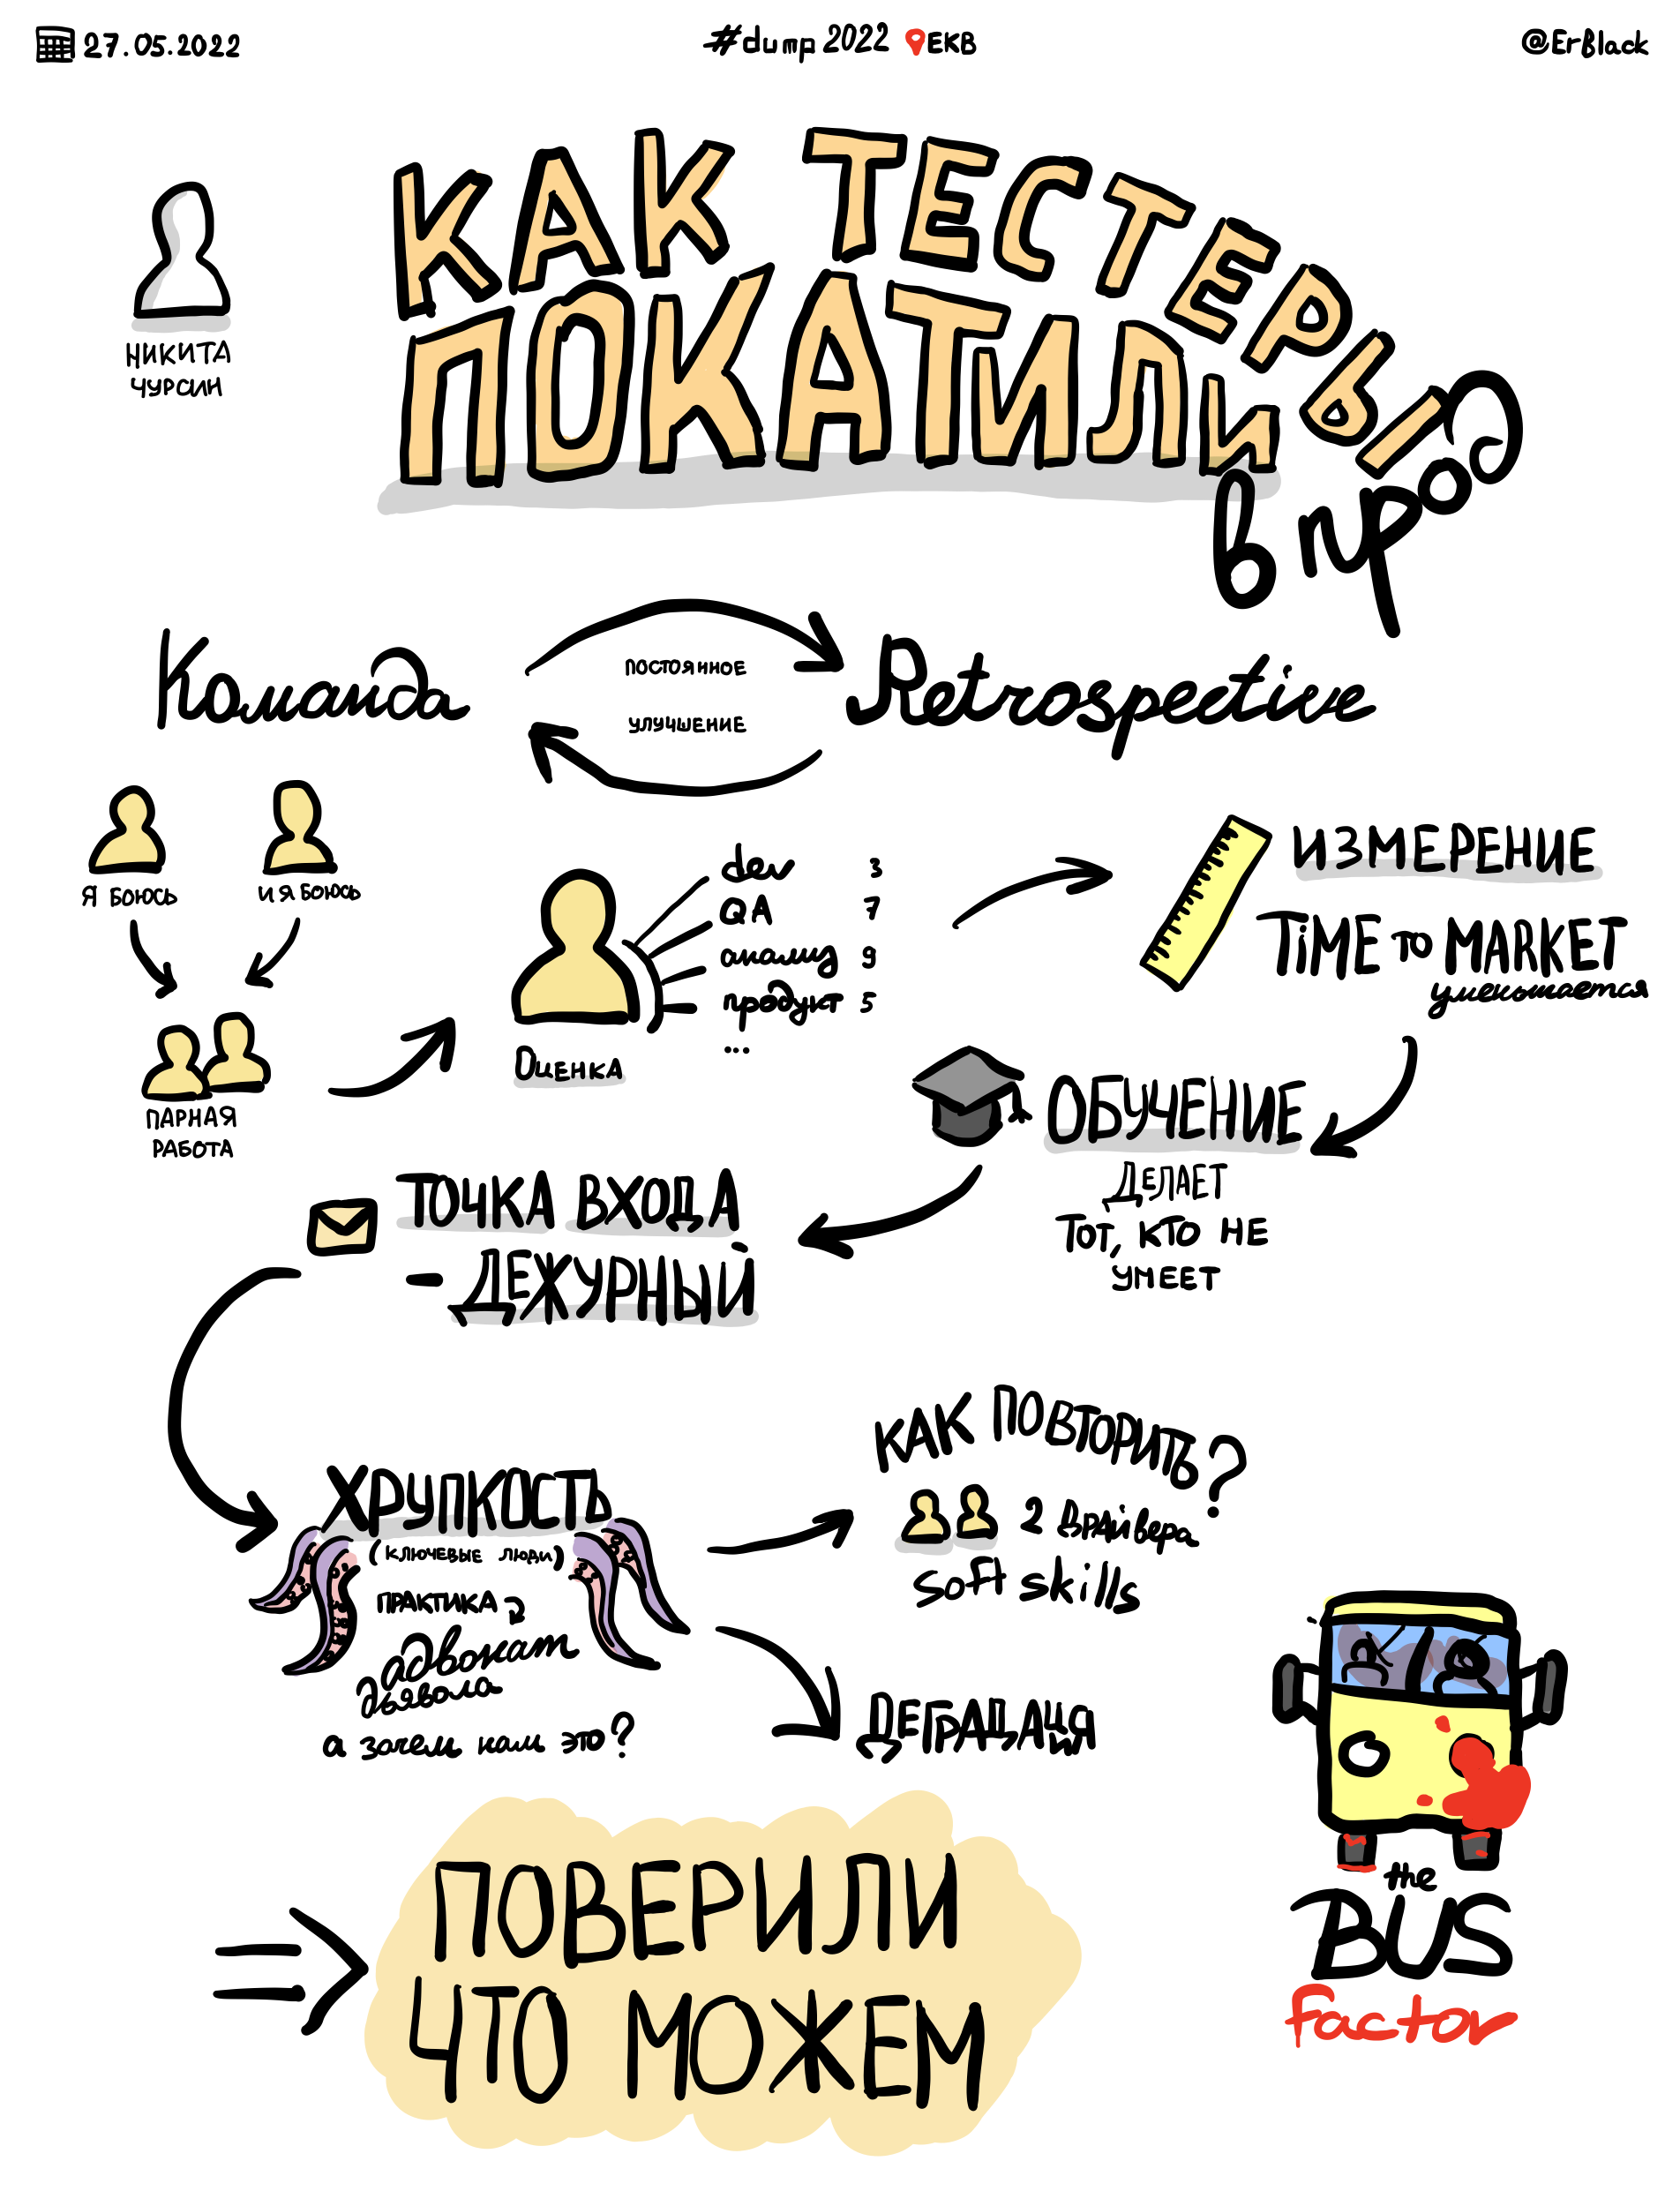 27.05.2022
#dump 2022 ЕКВ
@ErBlack
НИКИТА
ЧУРСИН
КАК ТЕСТЕРЫ
ПОКАТИЛИ
в прод
Команда
постоянное
улучшение
Retrospective
Я БОЮСЬ
И Я БОЮСЬ
ПАРНАЯ
РАБОТА
ОЦЕНКА
dev 3
QA 7
анализ 9
продукт 5
...
ИЗМЕРЕНИЕ
TiME TO MARKET
уменьшается
ОБУЧЕНИЕ
ДЕЛАЕТ
ТОТ, КТО НЕ
УМЕЕТ
ТОЧКА ВХОДА
- ДЕЖУРНЫЙ
ХРУПКОСТЬ
(КЛЮЧЕВЫЕ ЛЮДИ)
ПРАКТИКА
адвокат
дьявола
а зачем нам это?
КАК ПОВТОРИТЬ?
2 драйвера
soft skills
ДЕГРАДАЦИЯ
the
BUS
factor
ПОВЕРИЛИ
ЧТО МОЖЕМ